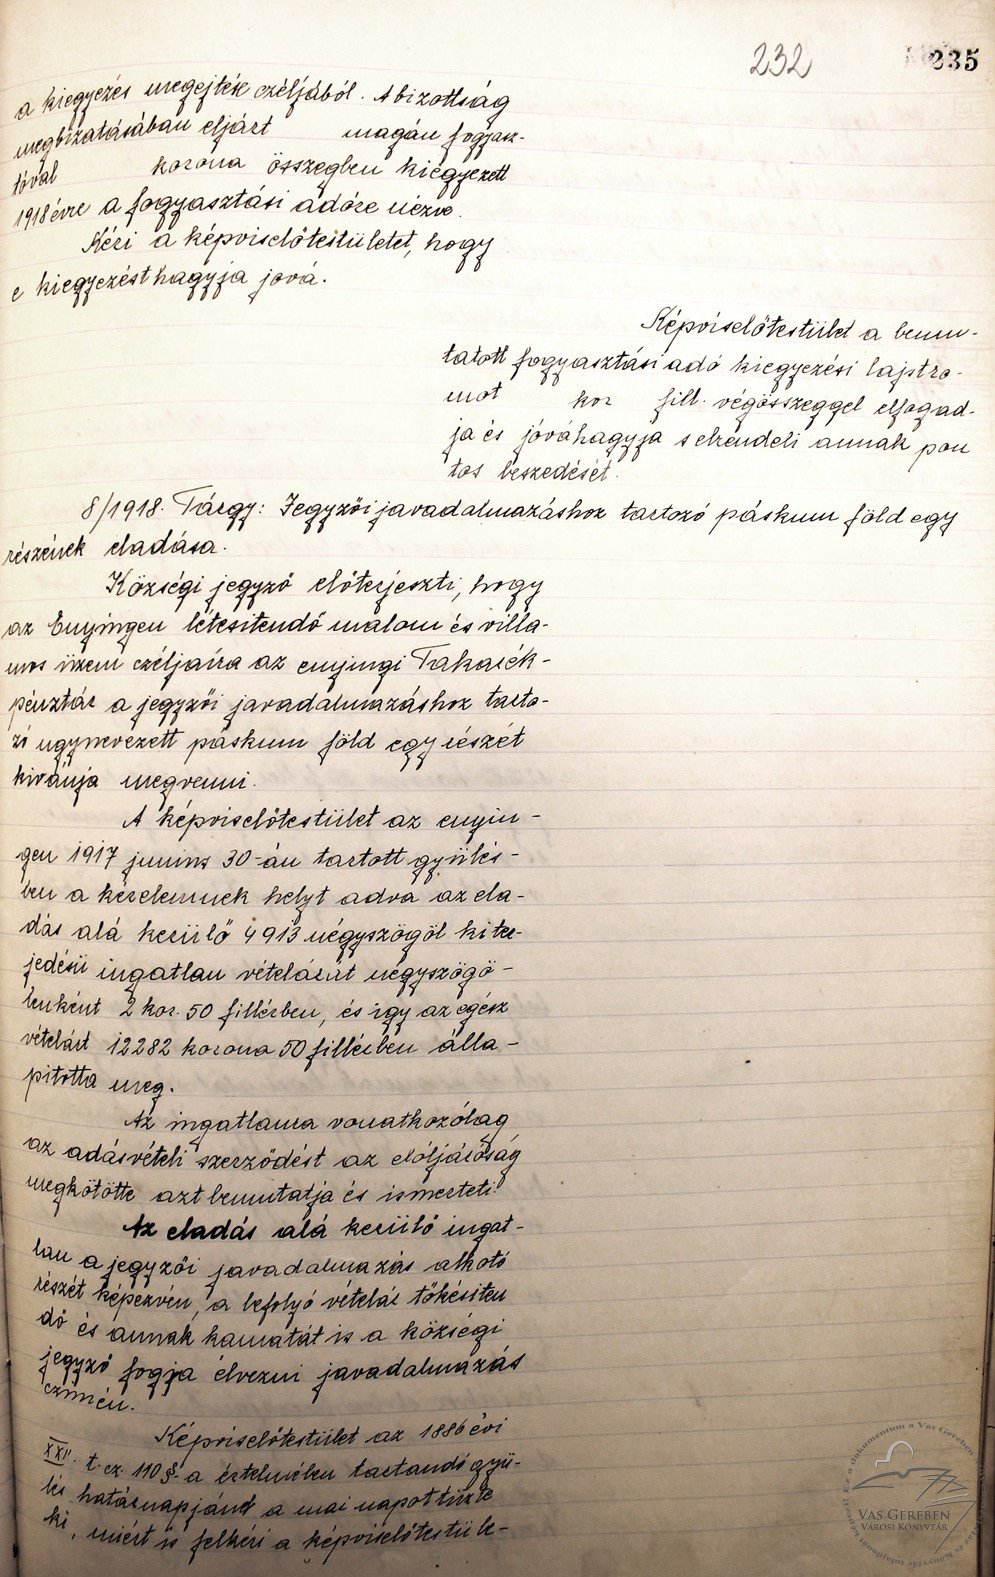 232
235
a kiegyezés megejtése czéljából. A bizottság
megbizatásában eljárt magán fogyasz-
tóval korona összegben kiegyezett
1918 évre a fogyasztási adóra nézve.
Kéri a képviselőtestületet, hogy
e kiegyezést hagyja jová.
Képviselőtestület a bemu-
tatott fogyasztási adó kiegyezési lajstro-
mot kor fill. végösszeggel elfogad-
ja és jóváhagyja s elrendeli annak pon
tos beszedését.
8/1918. Tárgy: Jegyzői javadalmazáshoz tartozó páskum föld egy
részének eladása.
Községi jegyző előterjeszti, hogy
az Enyingen létesitendő malom és villa-
mos üzem czéljaira az enyingi Takarék-
pénztár a jegyzői javadalmazáshoz tarto-
zó ugynevezett páskum föld egy részét
kivánja megvenni.
A képviselőtestület az enyin-
gen 1917 junius 30-án tartott gyülés-
ben a kérelemnek helyt adva az ela-
dás alá kerülő 4913 négyszögöl kiter-
jedésü ingatlan vételárát négyszögö-
lenként 2 kor. 50 fillérben, és igy az egész
vételárt 12282 korona 50 fillérben álla-
pitotta meg.
Az ingatlanra vonatkozólag
az adásvételi szerződést az elóljáróság
megkötötte azt bemutatja és ismerteti.
Az eladás alá kerülő ingat-
lan a jegyzői javadalmazás alkotó
részét képezvén, a befolyó vételár tőkésiten
dő és annak kamatát is a községi
jegyző fogja élvezni javadalmazás
czimén.
Képviselőtestület az 1886 évi
XXII. t. cz. 110 §-a értelmében tartandó gyü-
lés határnapjául a mai napot tüzte
ki, miért is felkéri a képviselőtestüle-
VAS GEREBEN
VÁROSI KÖNYVTÁR